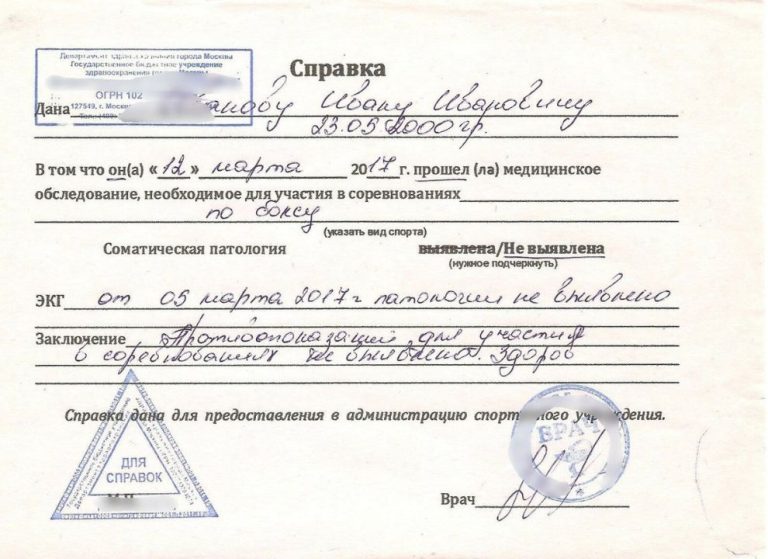 Департамент здравоохранения города Москвы
Государственное бюджетное учреждение
здравоохранения города Москвы
ОГРН 102
127549, г. Москва
Тел.: (499)
Справка
Дана Иванову Ивану Ивановичу
23.05.2000гр.
В том что он(а) «12» марта 2017 г. прошел (ла) медицинское
обследование, необходимое для участия в соревнованиях
по боксу
(указать вид спорта)
Соматическая патология выявлена/Не выявлена
(нужное подчеркнуть)
ЭКГ от 05 марта 2017 г патологии не выявлено
Заключение Противопоказаний для участия
в соревнованиях не выявлено. Здоров
Справка дана для предоставления в администрацию спортивного учреждения.
ДЛЯ
СПРАВОК
ВРАЧ
Врач